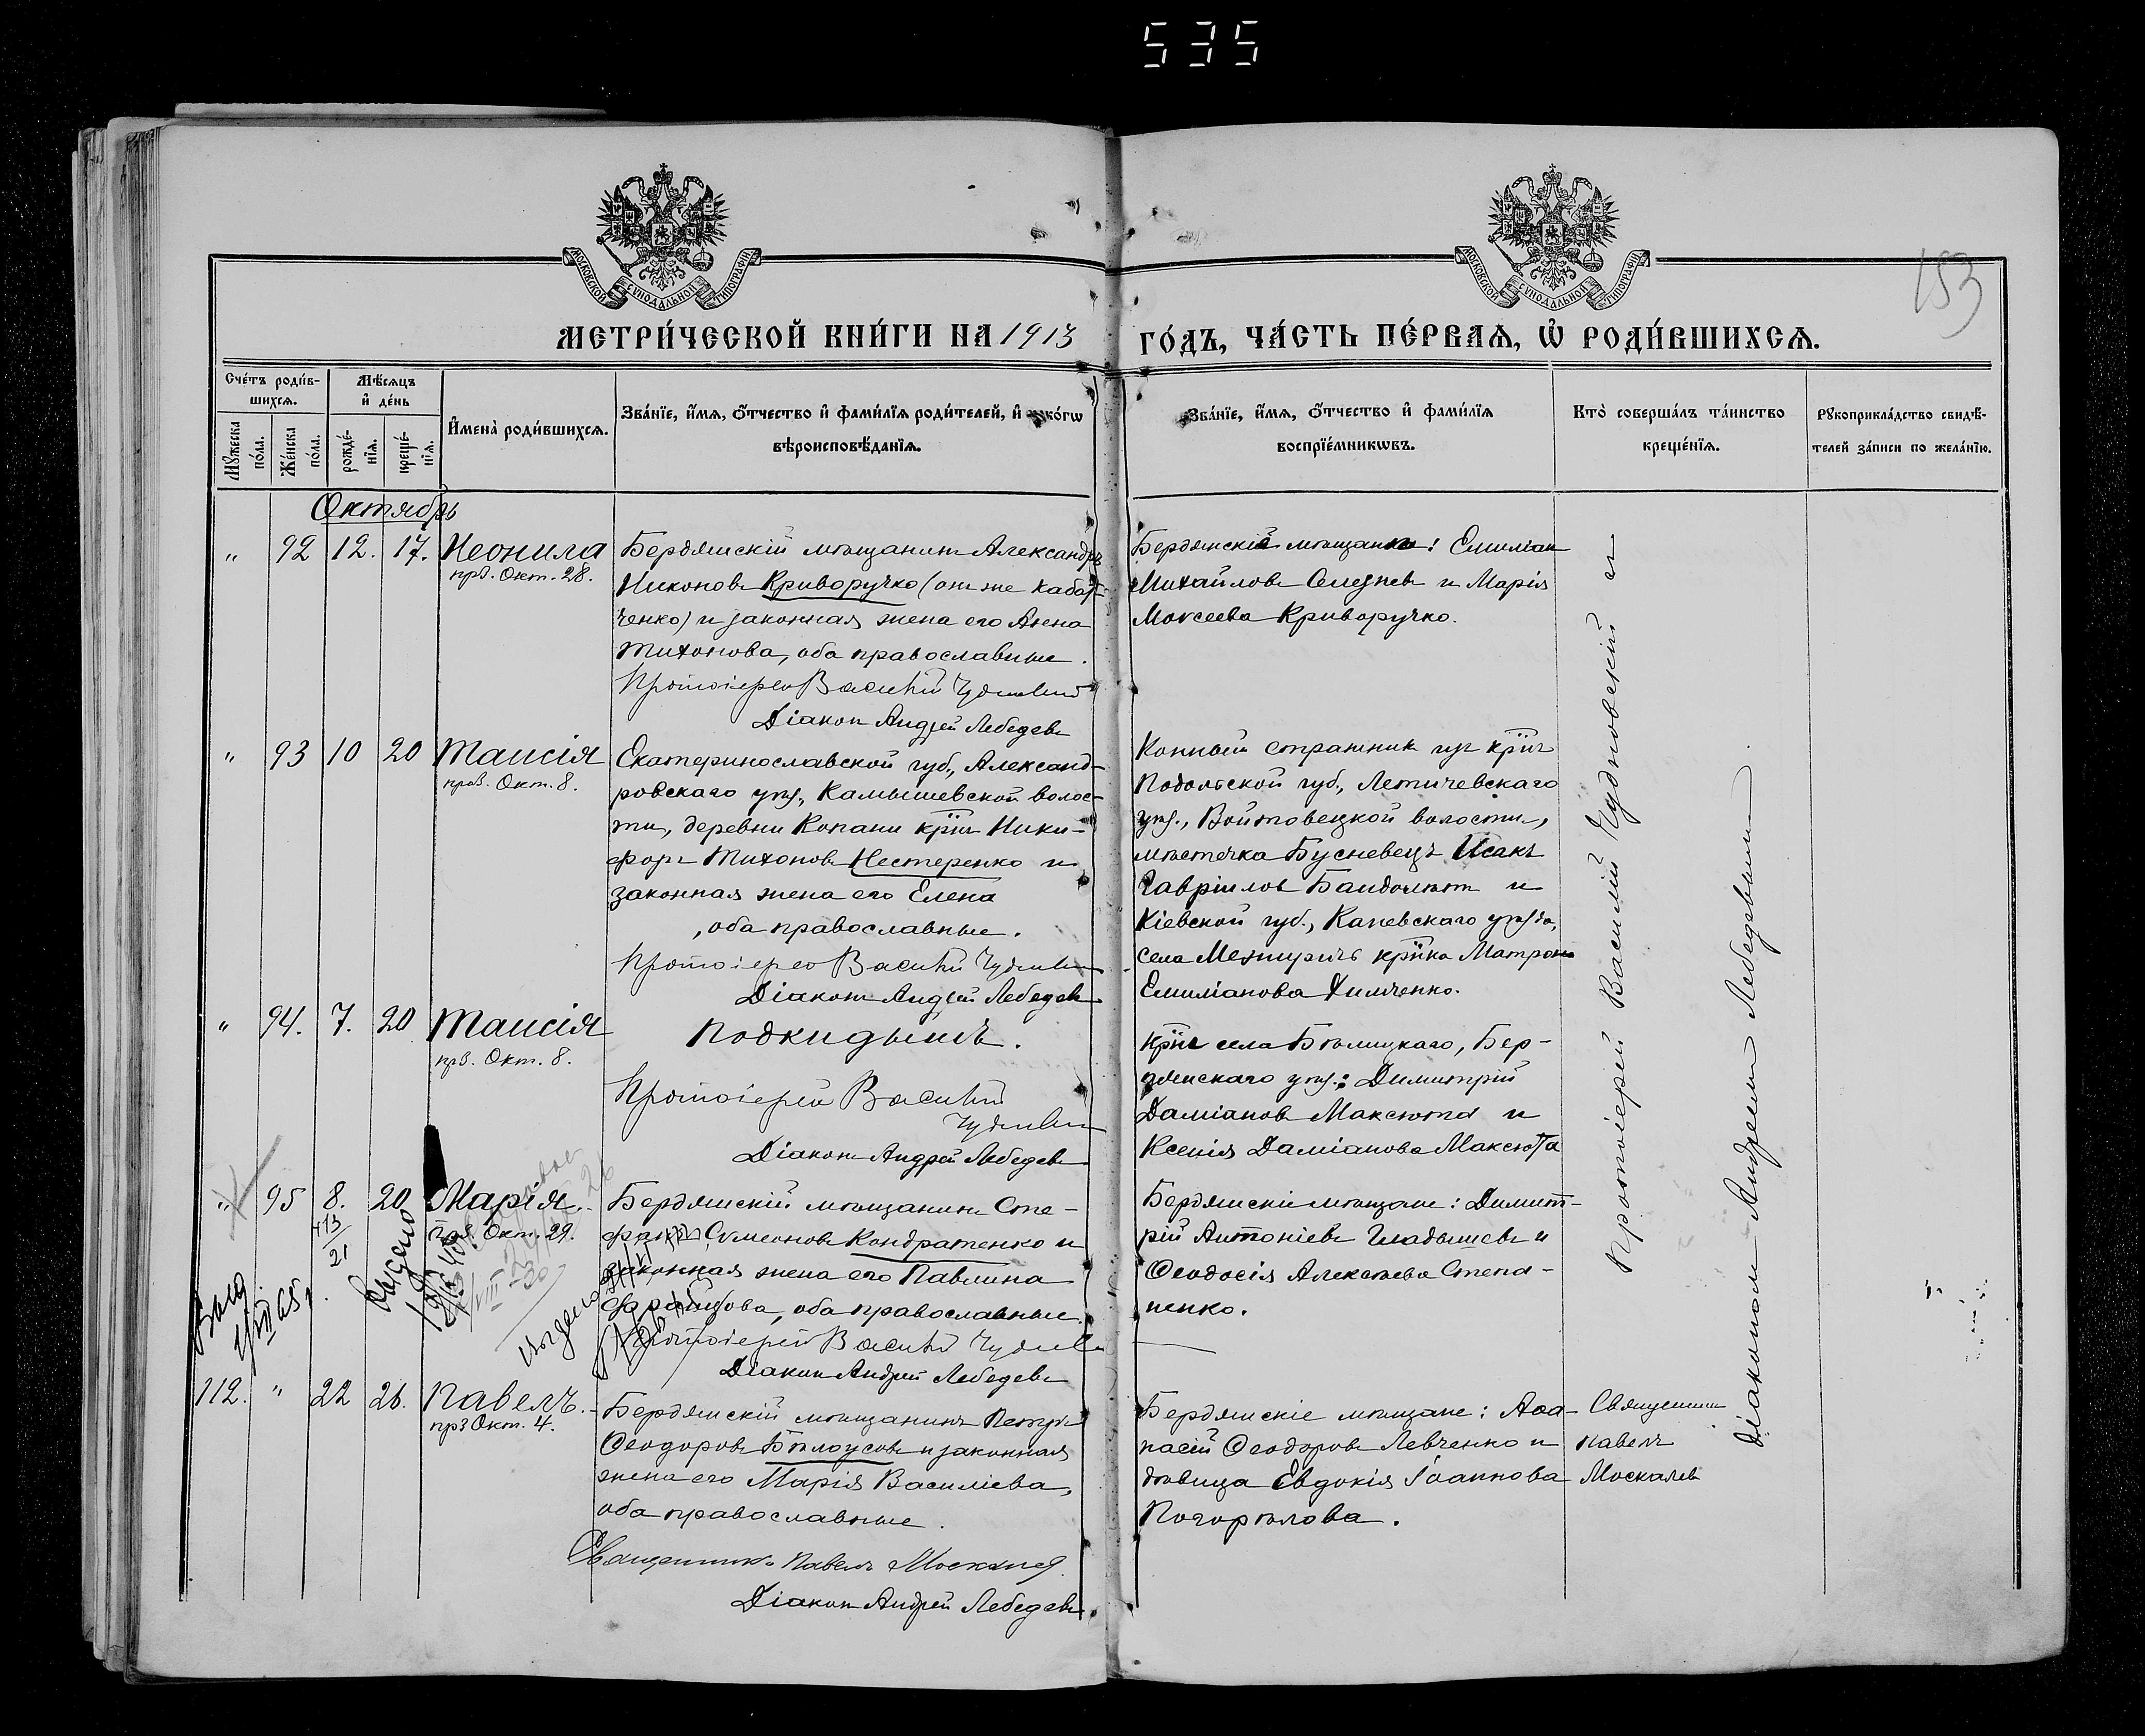 535
МОСКОВСКОЙ СѴНОДАЛЬНОЙ ТИПОГРАФІИ
МОСКОВСКОЙ СѴНОДАЛЬНОЙ ТИПОГРАФІИ
153
МЕТРИ́ЧЕСКОЙ КНИ́ГИ НА 1913
ГО́ДЪ, ЧА́СТЬ ПЕ́РВАѦ, Ѡ РОДИ́ВШИХСѦ.
Сче́тъ роди́в-
шихсѧ.
Мѣ́сѧцъ
и҆ де́нь
Мꙋ́жеска
по́ла.
Же́нска
по́ла.
рожде́-
нїѧ.
креще́-
нїѧ.
И҆мена̀ роди́вшихсѧ.
Зва́нїе, и҆́мѧ, ѻ҆́тчество и҆ фами́лїѧ роди́телей, и҆ како́гѡ
вѣроисповѣ́данїѧ.
Зва́нїе, и҆́мѧ, ѻ҆́тчество и҆ фами́лїѧ
воспрїе́мникѡвъ.
Кто̀ соверша́лъ та́инство
креще́нїѧ.
Рꙋкоприкла́дство свидѣ́-
телей за́писи по жела́нїю.
Октябрь
„ 92 12. 17. Неонила
прз. Окт. 28.
Бердянскій мѣщанинъ Александръ
Никоновъ Криворучко (онъ же Кабат-
ченко) и законная жена его Анна
Тихонова, оба православные.
Протоіерей Василій Чудновскій
Діаконъ Андрей Лебедевъ
Бердянскіе мѣщане: Емиліан
Михайловъ Селезневъ и Марія
Моисеева Криворучко.
„ 93 10 20 Таисія
празд. Окт. 8.
Екатеринославской губ., Александ-
ровскаго уѣз., Камышевской волос-
ти, деревни Копани крїнъ Ники-
форъ Тихоновъ Нестеренко и
законная жена его Елена
, оба православные.
Протоіерей Василій Чудновскій
Діаконъ Андрей Лебедевъ
Конный стражникъ изъ крїнъ
Подольской губ., Летичевскаго
уѣз., Войтовецкой волости,
мѣстечка Бусневецъ Исакъ
Гавріиловъ и
Кіевской губ., Каневскаго уѣзда,
села Межиричъ крїнка Матрона
Емиліанова Химченко.
„ 94. 7. 20 Таисія
прз. Окт. 8.
Подкидышъ.
Протоіерей Василій
Чудновскій
Діаконъ Андрей Лебедевъ
Крїне села Бѣлицкаго, Бер-
дянскаго уѣз.: Димитрій
Даміановъ Максюта и
Ксенія Даміанова Максюта
„ 95 8. 20 Марія.
Окт. 29.
21
Бердянскій мѣщанинъ Сте-
фанъ Сѵмеоновъ Кондратенко и
законная жена его Павлина
, оба православные.
Протоіерей Василій Чудновскій
Діаконъ Андрей Лебедевъ
Бердянскіе мѣщане: Димит-
рій Антоніевъ Гладышевъ и
Ѳеодосія Алексѣева Степа-
ненко.
Протоіерей Василій Чудновскій съ
діакономъ Андреемъ Лебедевымъ.
112. „ 22 26. Павелъ.
прз Окт. 4.
Бердянскій мѣщанинъ Петръ
Ѳеодоровъ Бѣлоусовъ и законная
жена его Марія Василіева,
оба православные.
Священникъ Павелъ Москалев
Діаконъ Андрей Лебедевъ
Бердянскіе мѣщане: Аѳа-
насій Ѳеодоровъ Левченко и
дѣвица Евдокія Іоаннова
Погорѣлова.
Священникъ
Павелъ
Москалев